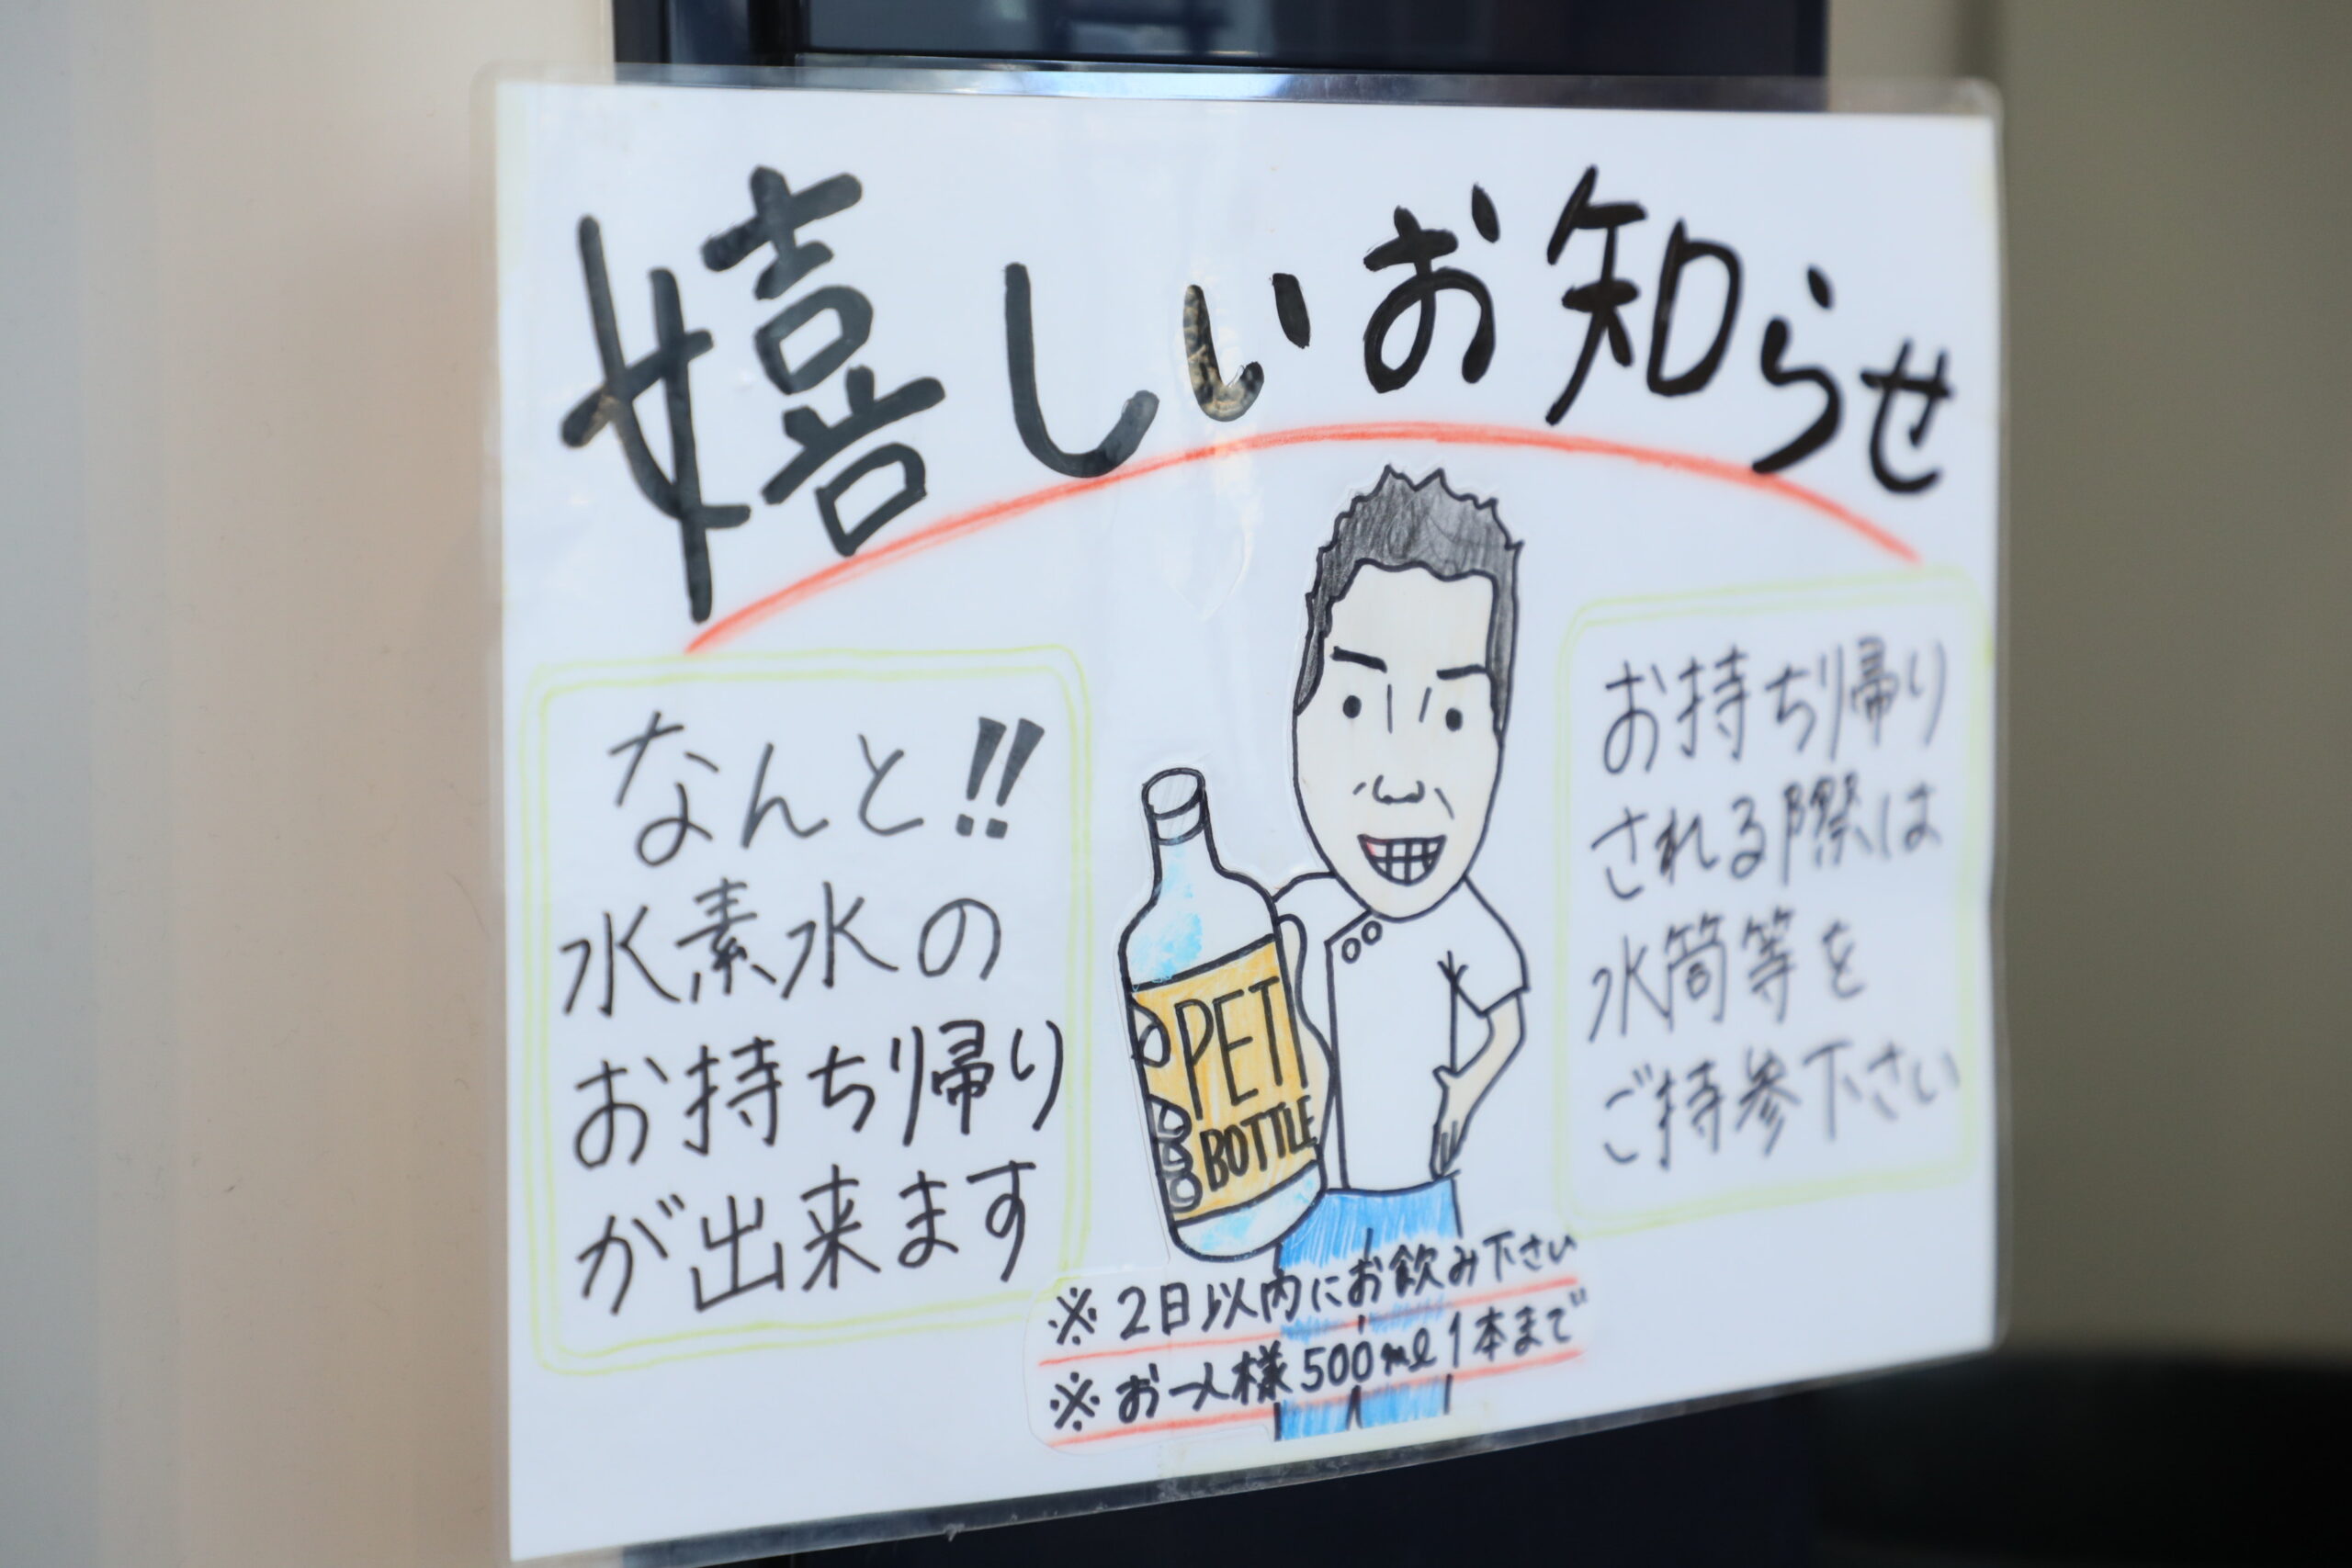 嬉しいお知らせ
なんと!!
水素水の
お持ち帰り
が出来ます
お持ち帰り
される際は
水筒等を
ご持参下さい
PET
BOTTLE
※2日以内にお飲み下さい
※お一人様500ml1本まで